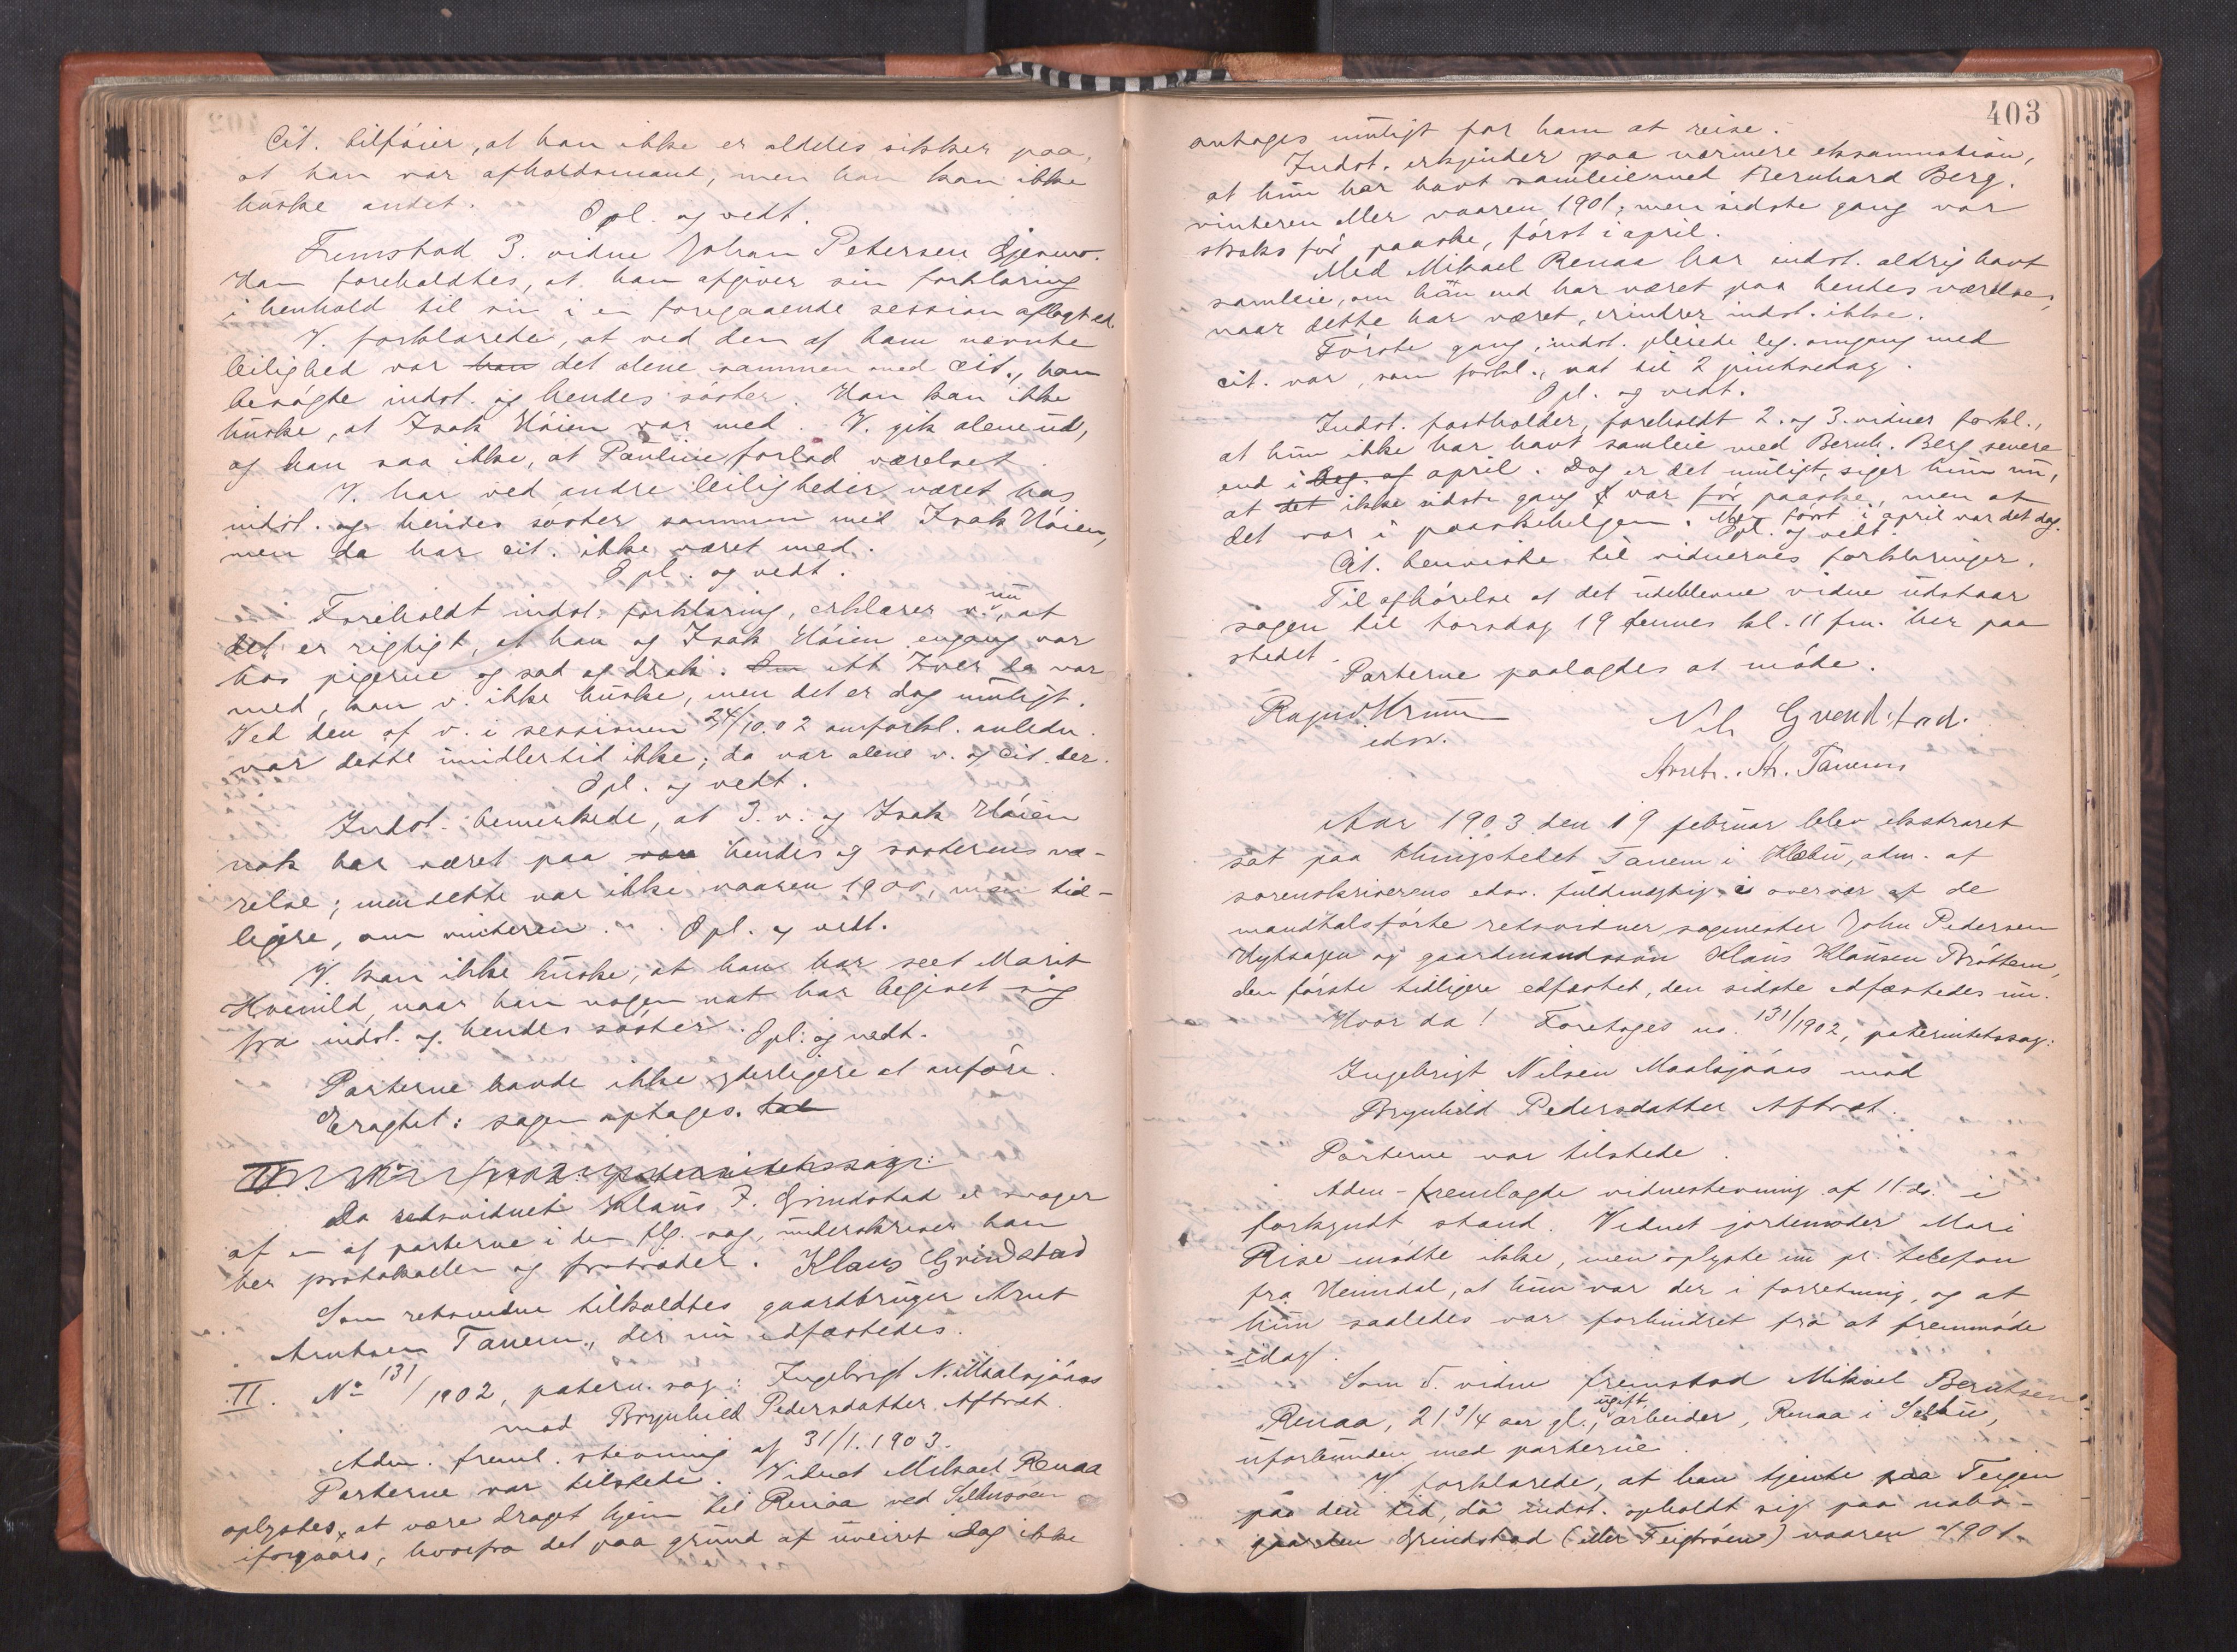 Cit. tilføier, at han ikke er aldeles sikker paa,
at han var afholdsmand, men han kan ikke
huske andet. Opl. og vedt.
Fremstod 3. vidne Johan Petersen
Han foreholdtes, at han afgiver sin forklaring
i henhold til sin i en foregaaende session aflagt ed.
V. forklarede, at ved den af ham nævnte
leilighed var han det alene sammen med cit., han
besøgte indst. og hendes søster. Han kan ikke
huske, at Isak Høien var med. V. gik alene ud,
og han saa ikke, at Pauline forlod værelset.
V. har ved andre leiligheder været hos
indst. og hendes søster sammen med Isak Høien,
men da har cit. ikke været med.
Opl. og vedt.
Foreholdt indst. forklaring, erklærer v. nu, at
det er rigtigt, at han og Isak Høien engang var
hos pigerne og sad og drak. Om att Iver da var
med, kan v. ikke huske, men det er dog muligt.
Ved den af v. i sessionen 24/10.02 omforkl. anledn.
var dette imidlertid ikke; da var alene v. og cit. der.
Opl. og vedt.
Indst. bemerkede, at 3. v. og Isak Høien
nok har været paa hendes og søsterens væ-
relse; men dette var ikke vaaren 1900, men tid-
ligere, om vinteren. Opl. og vedt.
V. kan ikke huske, at han har seet Marit
Hvenild, naar han nogen nat har begivet sig
fra indst. og hendes søster. Opl. og vedt.
Parterne havde ikke yderligere at anføre.
Eragtet: sagen optages. tal
II. No 1902: paternitetssag:
Da retsvidnet Klaus J. Grindstad er svoger
af en af parterne i den flg. sag, underskriver han
her protokollen og fratræder. Klaus Grindstad
Som retsvidne tilkaldtes gaardbruger Arnt
Arntsen Tanem, der nu edfæstedes.
II. No 131/1902, patern. sag: Ingebrigt N. Maalsjøaas
mod Brynhild Pedersdatter Aftræt.
Adm. freml. stevning af 31/1.1903.
Parterne var tilstede. Vidnet Mikael Renaa
oplystes at være draget hjem til Renaa ved Selbusøen
iforgaars, hvorfra det paa grund af uveiret idag ikke
403
antages muligt for ham at reise.
Indst. erkjender paa nærmere eksamination,
at hun har havt samleie med Bernhard Berg.
vinteren eller vaaren 1901, men sidste gang var
straks før paaske, først i april.
Med Mikael Renaa har indst. aldrig havt
samleie, om han end har været paa hendes værelse;
naar dette har været, erindrer indst. ikke.
Første gang, indst. pleiede leg. omgang med
cit. var, som forkl., nat til 2 pinksedag.
Opl. og vedt.
Indst. fastholder, foreholdt 2. og 3. vidners forkl.,
at hun ikke har havt samleie med Bernh. Berg senere
end i beg. af april. Dog er det muligt, siger hun nu,
at det ikke sidste gang var før paaske, men at
det var i paaskehelgen. Men først i april var det dog.
Opl. og vedt.
Cit. henviste til vidnernes forklaringer.
Til afhørelse af det udeblevne vidne udstaar
sagen til torsdag 19 dennes kl. 11 fm. her paa
stedet.
Parterne paalagdes at møde.
edsv.
Arnt. Ar. Tanem
Aar 1903 den 19 februar blev ekstraret
sat paa thingstedet Tanem i Klæbu, adm. af
sorenskriverens edsv. fuldmægtig i overvær af de
mandtalsførte retsvidner, sagmester John Pedersen
Nytsagen og gaardmandssøn Klaus Klausen Brøttem,
den første tidligere edfæstet, den sidste edfæstedes nu.
Hvor da! Foretoges no. 131/1902, paternitetssag:
Ingebrigt Nilsen Maalsjøaas mod
Brynhild Pedersdatter Aftræt.
Parterne var tilstede.
Adm. fremlagte vidnestevning af 11. ds. i
forkyndt stand. Vidnet jordemoder Mari
Rise mødte ikke, men oplyste nu pr. telefon
fra Heimdal, at hun var der i forretning, og at
hun saaledes var forhindret fra at fremmøde
idag.
Som 5. vidne fremstod Mikael Berntsen
Renaa, 21 3/4 aar gl., ugift, arbeider, Renaa i Selbu,
uforbunden med parterne.
V. forklarede, at han tjente paa Teigen
paa den tid, da indst. opholdt sig paa nabo-
gaarden Grindstad (eller Teigtrøen) vaaren 1901.